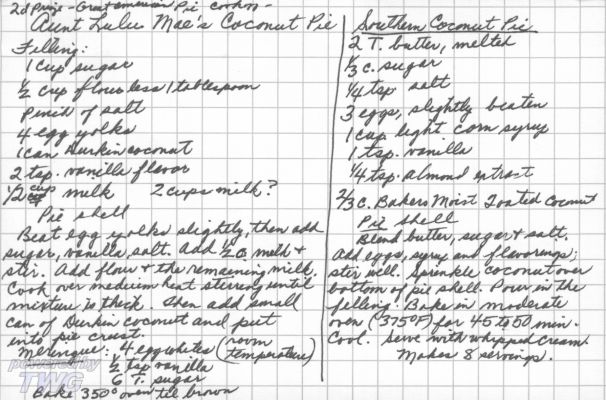 2d Prize - Great American Pie cookos -
Aunt Lulu Mae's Coconut Pie
Filling:
1 cup sugar
1/2 cup flour less 1 tablespoon
pinch of salt
4 egg yolks
1 can Durkin coconut
2 tsp. vanilla flavor
1/2 cup milk 2 cups milk?
Pie shell
Beat egg yolks slightly, then add
sugar, vanilla, salt. Add 1/2 c. milk &
stir. Add flour & the remaining milk.
Cook over medium heat stirring until
mixture is thick. Then add small
can of Durkin coconut and put
into pie crust.
Merengue: 4 egg whites (room temperature)
1/2 tsp vanilla
6 T. sugar
Bake 350° oven til brown
Southern Coconut Pie
2 T. butter, melted
1/3 c. sugar
1/4 tsp salt
3 eggs, slightly beaten
1 cup light corn syrup
1 tsp. vanilla
1/4 tsp. almond extract
2/3 c. Bakers Moist Toated Coconut
Pie shell
Blend butter, sugar & salt.
Add eggs, syrup and flavorings;
stir well. Sprinkle coconut over
bottom of pie shell. Pour in the
felling. Bake in moderate
oven (375°F) for 45 to 50 min.
Cool. Serve with whipped cream
Makes 8 servings.
powered by
TWG